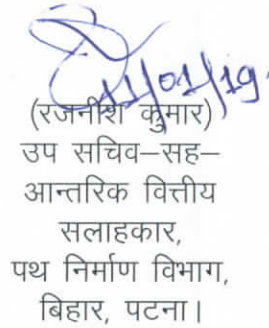 11/01/19.
(रजनीश कुमार)
उप सचिव–सह–
आन्तरिक वित्तीय
सलाहकार,
पथ निर्माण विभाग,
बिहार, पटना।